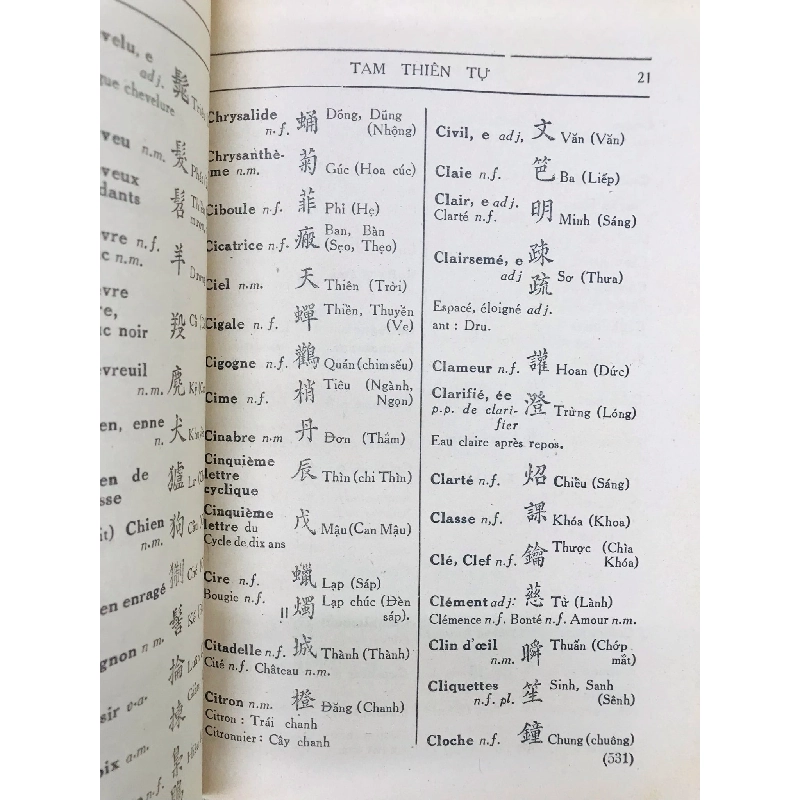 velu, e
adj.
que chevelure
髮
veu n.m.
veux
dants
vre n.f.
c n.m.
羊
羖
evreuil
n.m.
en, enne
n.
犬
en de
sse
it) Chien
n.m.
狗
en enragé
gnon n.m.
sir v.a.
oix a.m.
TAM THIÊN TỰ
21
Chrysalide 蛹 Dõng, Dũng
n.f. (Nhộng)
Chrysanthè- 菊 Gúc (Hoa cúc)
me n.m.
Ciboule n.f. 菲 Phỉ (Hẹ)
Cicatrice n.f. 瘢 Ban, Bàn
(Sẹo, Thẹo)
Ciel n.m. 天 Thiên (Trời)
Cigale n.f. 蟬 Thiền, Thuyền
(Ve)
Cigogne n.f. 鸛 Quán (chim sếu)
Cime n.f. 梢 Tiêu (Ngành,
Ngọn)
Cinabre n.m 丹 Đơn (Thắm)
Cinquième 辰 Thìn (chi Thìn)
lettre
cyclique
Cinquième 戊 Mậu (Can Mậu)
lettre du
Cycle de dix ans
Cire n.f. 蠟 Lạp (Sáp)
Bougie n.f. 〃 燭 Lạp chúc (Đèn
sáp).
Citadelle n.f. 城 Thành (Thành)
Cité n.f. Château n.m.
Citron n.m. 橙 Đăng (Chanh)
Citron : Trái chanh
Citronnier : Cây chanh
Civil, e adj, 文 Văn (Văn)
Claie n.f. 笆 Ba (Liếp)
Clair, e adj. 明 Minh (Sáng)
Clarté n.f.
Clairsemé, e 疎
adj 疏 Sơ (Thưa)
Espacé, éloigné adj.
ant : Dru.
Clameur n.f. 讙 Hoan (Dức)
Clarifié, ée 澄 Trừng (Lóng)
p.p. de clari-
fier
Eau claire après repos.
Clarté n.f. 炤 Chiều (Sáng)
Classe n,f. 課 Khóa (Khoa)
Clé, Clef n.f. 鑰 Thược (Chìa
Khóa)
Clément adj: 慈 Từ (Lành)
Clémence n.f. Bonté n.f. Amour n.m.
Clin d'œil 瞬 Thuấn (Chớp
n.m. mắt)
Cliquettes 笙 Sinh, Sanh
n.f. pl. (Sênh)
Cloche n.f. 鐘 Chung (chuông)
(531)